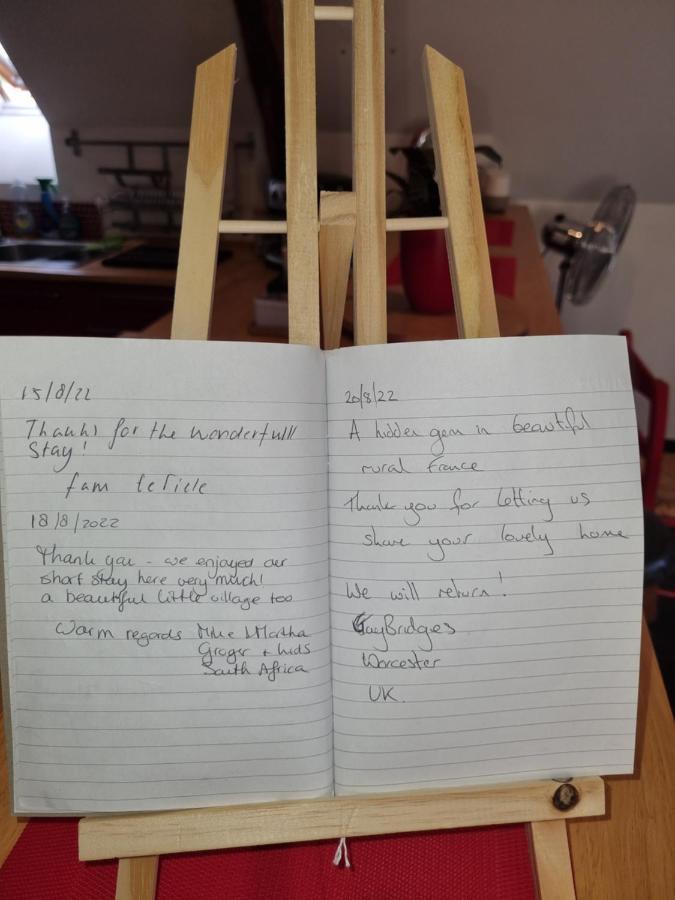 15/8/22
Thanks for the wonderfull
Stay!
fam
18/8/2022
Thank you - we enjoyed our
short stay here very much!
a beautiful little village too
Warm regards Mike & Martha
+ kids
South Africa
20/8/22
A hidden gem in beautiful
rural France
Thank you for letting us
share your lovely home
We will return!
Gay Bridges
Worcester
UK.